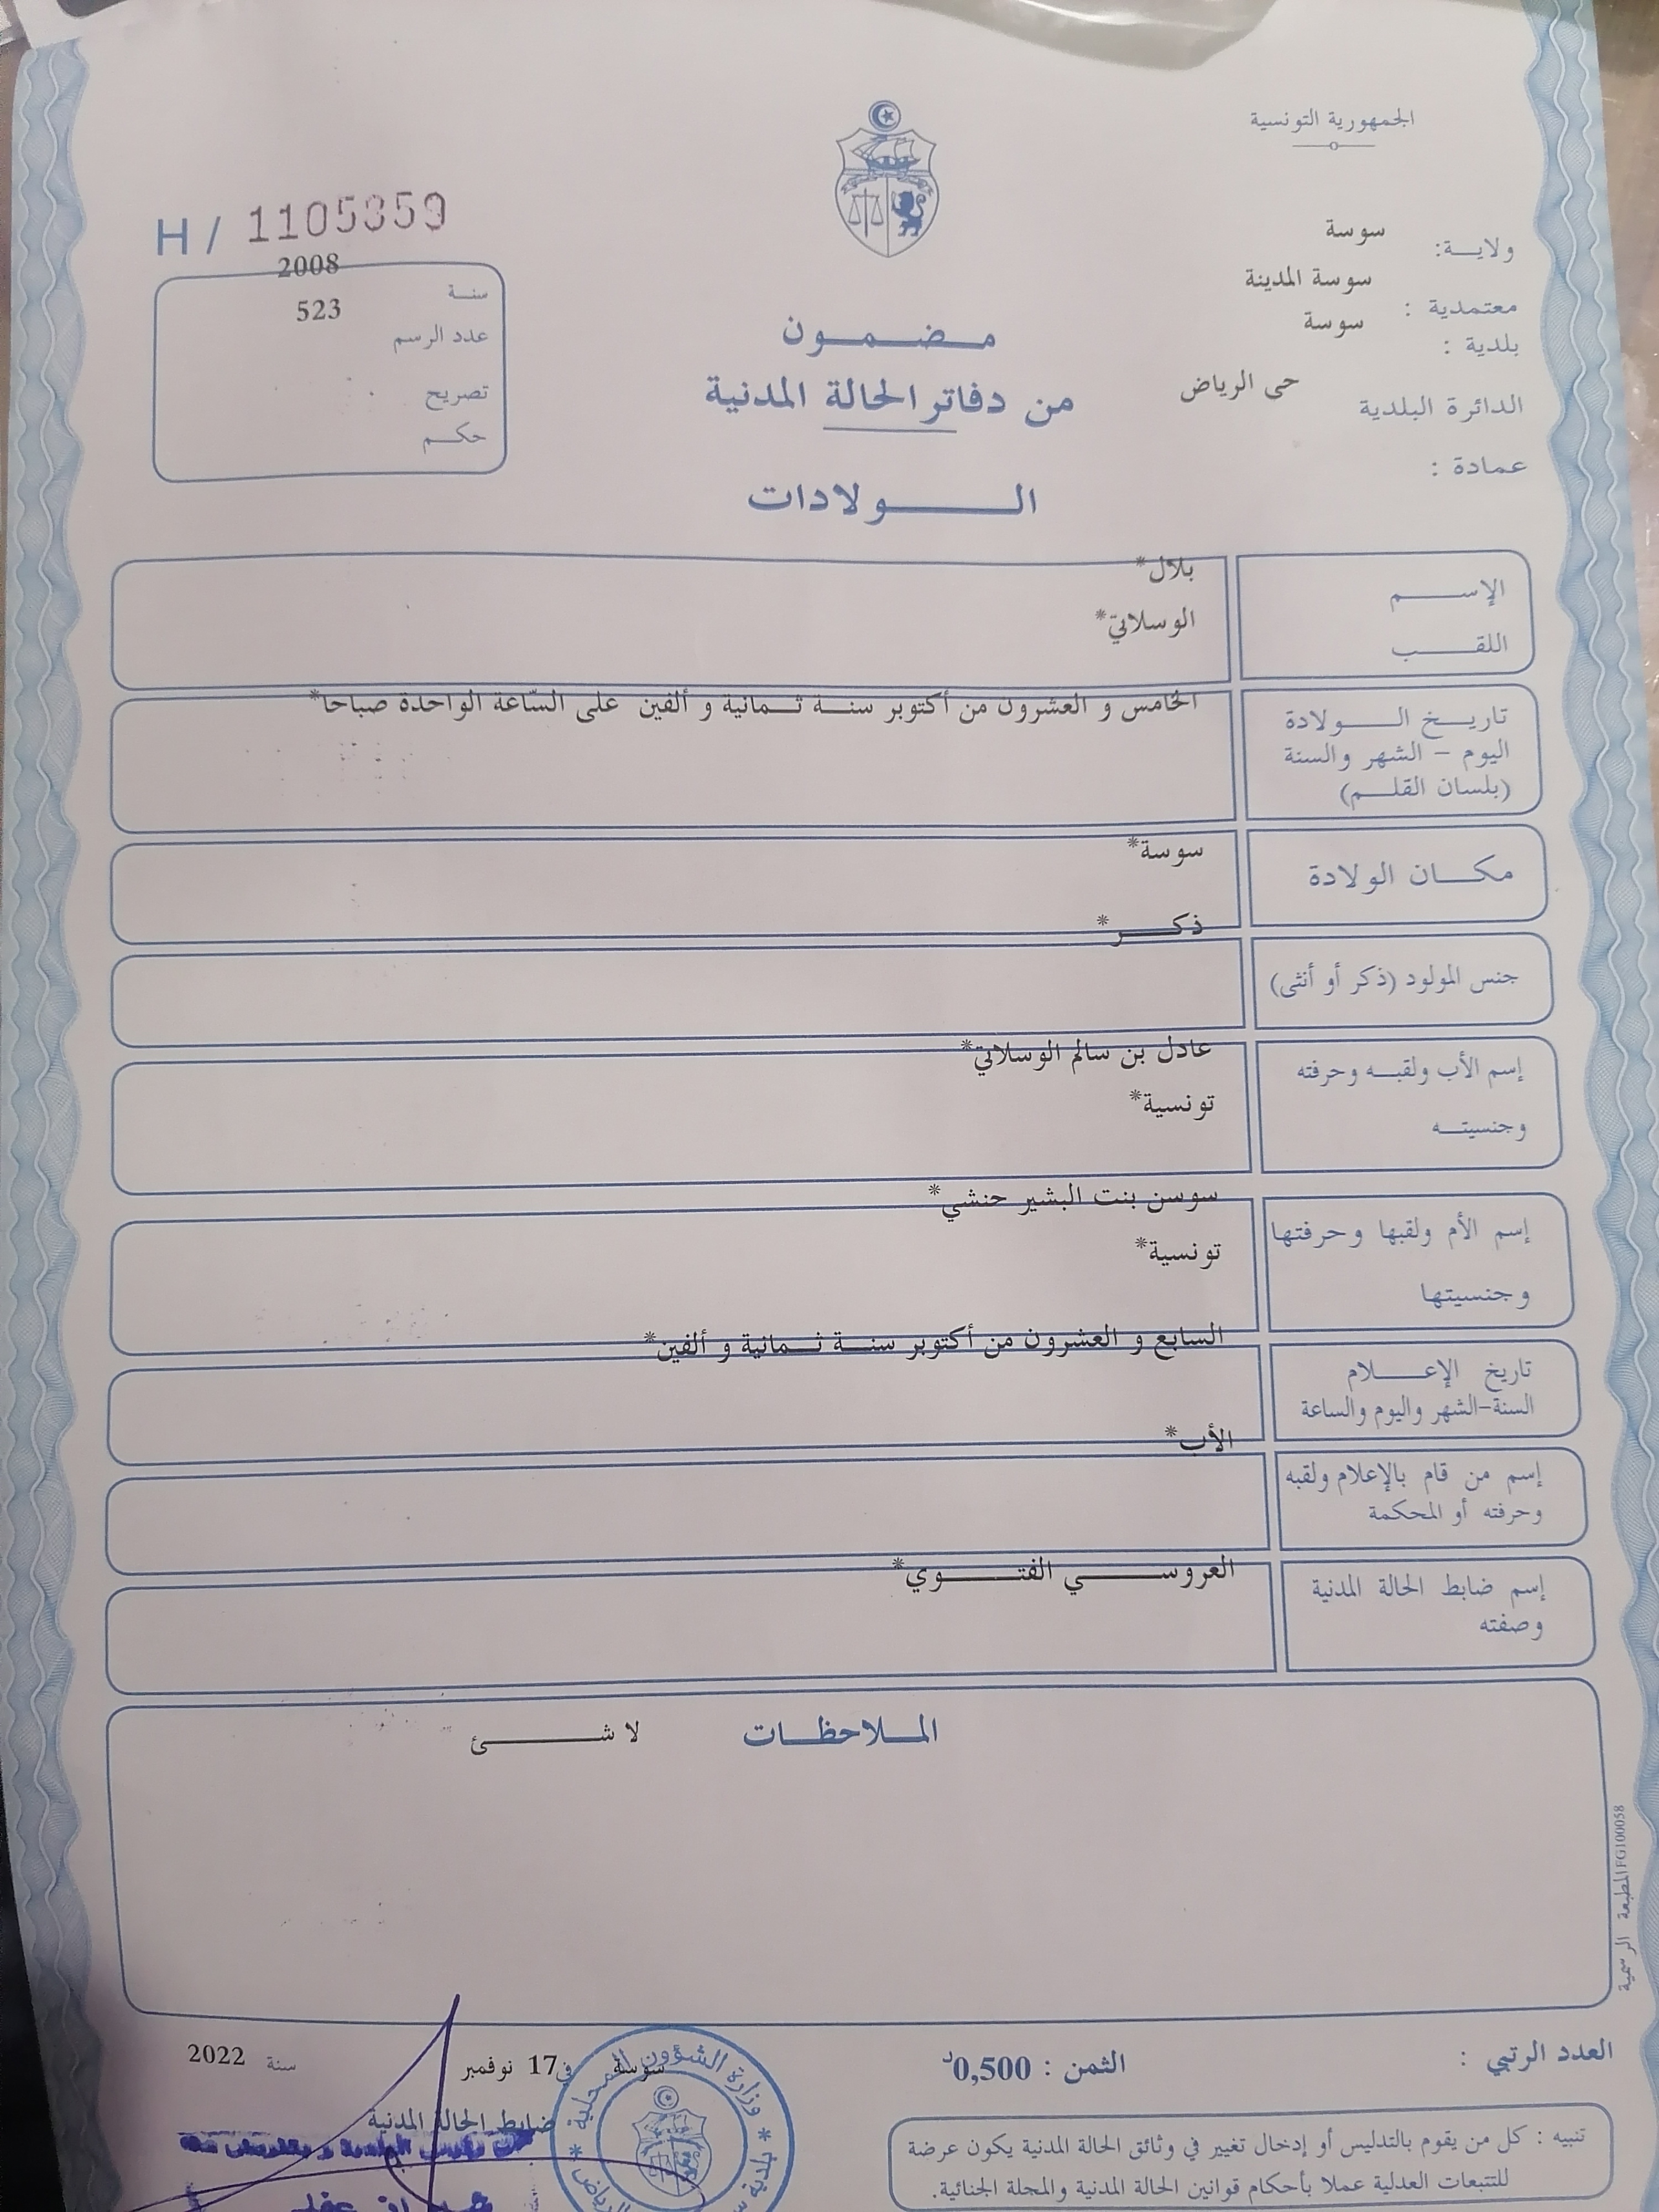 الجمهورية التونسية
ولاية: سوسة
معتمدية : سوسة المدينة
بلدية : سوسة
الدائرة البلدية حى الرياض
عمادة :
H / 1105359
سنة 2008
عدد الرسم 523
تصريح
حكم
مضمون
من دفاتر الحالة المدنية
الولادات
الإسم بلال*
اللقب الوسلاتي*
تاريخ الولادة الخامس و العشرون من أكتوبر سنة ثمانية و ألفين على السّاعة الواحدة صباحا*
اليوم - الشهر والسنة
(بلسان القلم)
مكان الولادة سوسة*
جنس المولود (ذكر أو أنثى) ذكر*
إسم الأب ولقبه وحرفته عادل بن سالم الوسلاتي*
وجنسيته تونسية*
إسم الأم ولقبها وحرفتها سوسن بنت البشير حنشي*
وجنسيتها تونسية*
تاريخ الإعلام السابع و العشرون من أكتوبر سنة ثمانية و ألفين*
السنة-الشهر واليوم والساعة
إسم من قام بالإعلام ولقبه الأب*
وحرفته أو المحكمة
إسم ضابط الحالة المدنية العروسي الفتوي*
وصفته
الملاحظات لا شئ
المطبعة الرسمية FG100058
العدد الرتبي :
الثمن : 0,500د
سوسة في 17 نوفمبر سنة 2022
ضابط الحالة المدنية
وزارة الشؤون المحلية
تنبيه : كل من يقوم بالتدليس أو إدخال تغيير في وثائق الحالة المدنية يكون عرضة
للتتبعات العدلية عملا بأحكام قوانين الحالة المدنية والمجلة الجنائية.